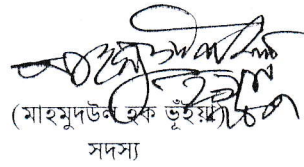 (মাহমুদউল হক ভূঁইয়া)
সদস্য